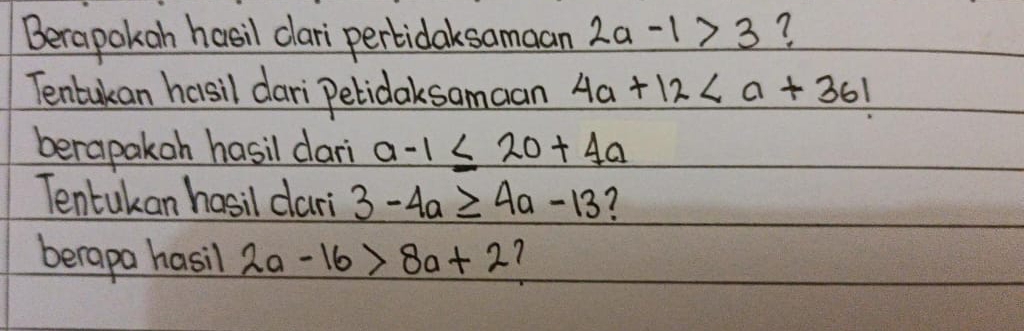 Berapakah hasil dari pertidaksamaan 2a - 1 > 3 ?
Tentukan hasil dari Petidaksamaan 4a + 12 < a + 36!
berapakah hasil dari a - 1 ≤ 20 + 4a
Tentukan hasil dari 3 - 4a ≥ 4a - 13?
berapa hasil 2a - 16 > 8a + 2?